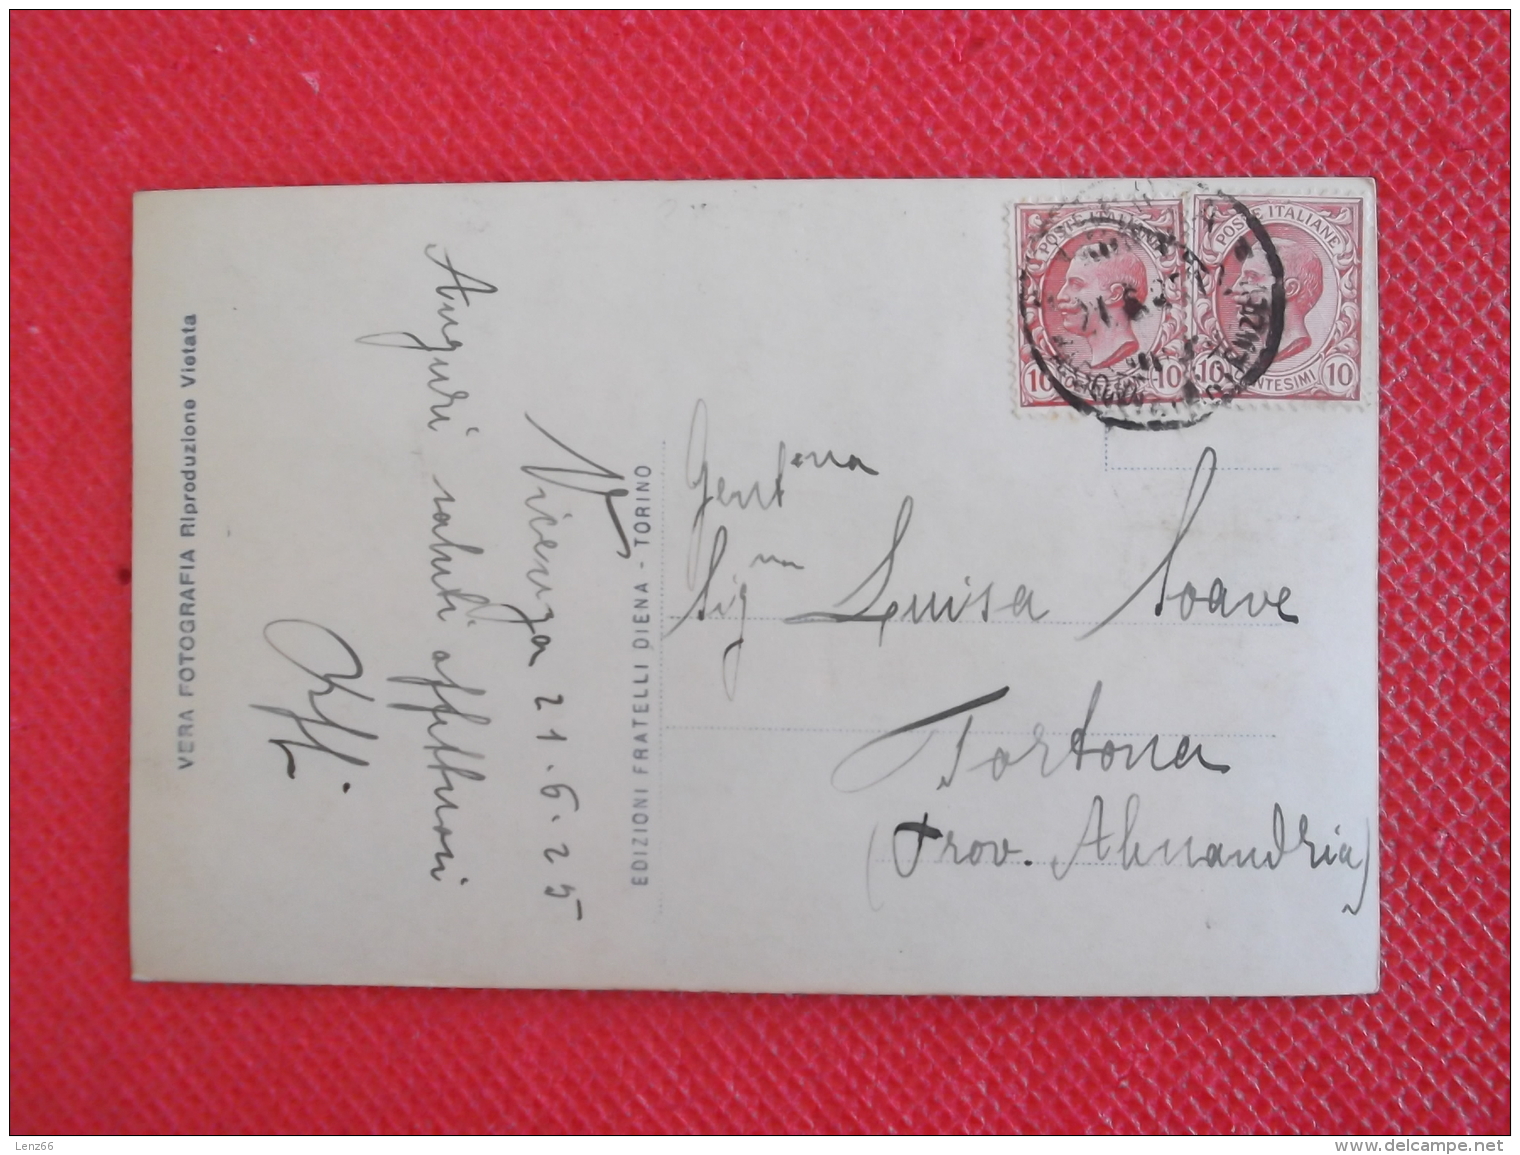 VERA FOTOGRAFIA Riproduzione Vietata
Vicenza 21.6.25
Auguri saluti affettuosi
EDIZIONI FRATELLI DIENA - TORINO
POSTE ITALIANE
10 10
POSTE ITALIANE
10 CENTESIMI 10
21.6
VICENZA
Gent.ma
Sig.na Luisa Soave
Tortona
(Prov. Alessandria)
Lenz66
www.delcampe.net